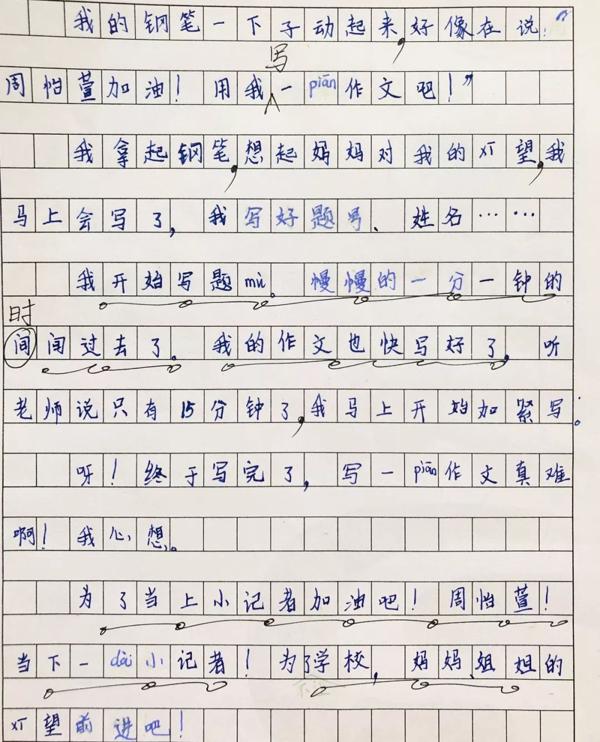 我的钢笔一下子动起来,好像在说:“
写
周怡萱加油!用我一piān作文吧!”
我拿起钢笔,想起妈妈对我的望,我
马上会写了,我写好题号、姓名……
我开始写题mù。慢慢的一分一钟的
时
间闻过去了。我的作文也快写好了,听
老师说只有15分钟了,我马上开始加紧写。
呀!终于写完了,写一piān作文真难
啊!我心想。
为了当上小记者加油吧!周怡萱!
当下一dài小记者!为了学校,妈妈姐姐的
望前进吧!